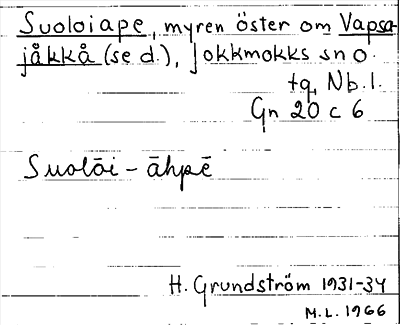 Suoloiape, myren öster om Vapsa-
jåkkå (se d.), Jokkmokks sn o.
tg, Nb. l.
Gn 20 c 6
Suolōi - āhpē
H. Grundström 1931-34
M.L. 1966